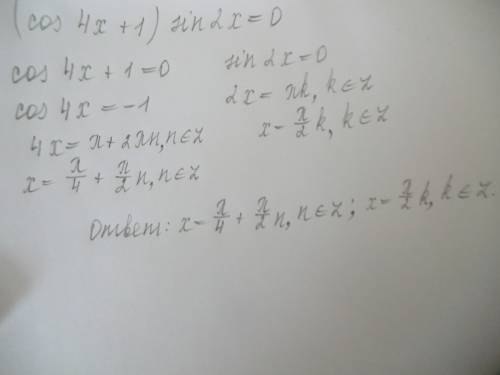 (cos 4x + 1) sin 2x = 0
cos 4x + 1 = 0
cos 4x = -1
4x = π + 2πn, n∈Z
x = π/4 + π/2 n, n∈Z
sin 2x = 0
2x = πk, k∈Z
x = π/2 k, k∈Z
Ответ: x = π/4 + π/2 n, n∈Z; x = π/2 k, k∈Z.